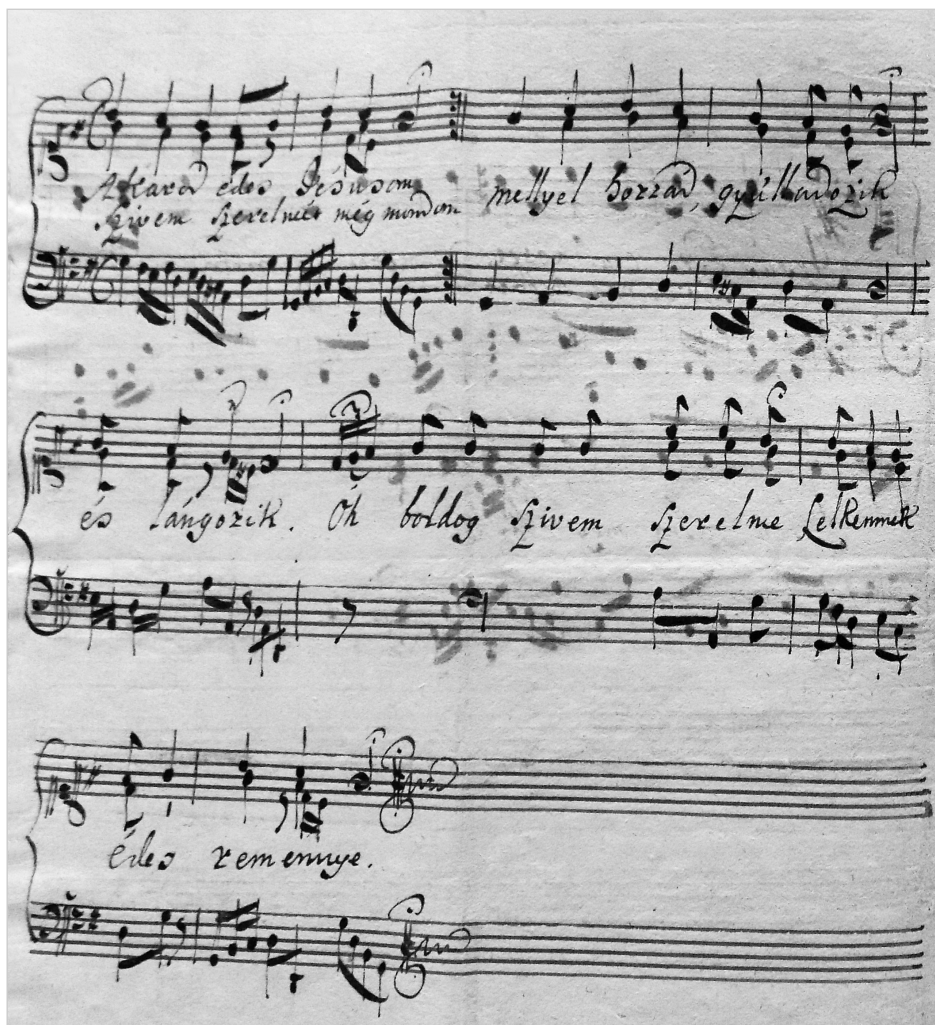 Akarod édes Jésusom mellyel hozzád, gyulladozik
szivem szerelmét még mondom
és lángozik. Oh boldog szivem szerelme Lelkemnek
édes remennye.